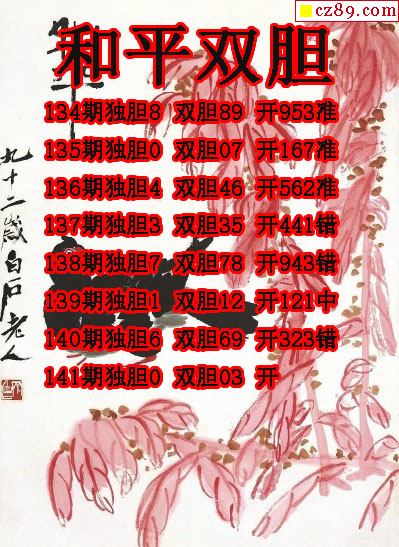 cz89.com
和平双胆
134期独胆8 双胆89 开953准
135期独胆0 双胆07 开167准
136期独胆4 双胆46 开562准
137期独胆3 双胆35 开441错
138期独胆7 双胆78 开943错
139期独胆1 双胆12 开121中
140期独胆6 双胆69 开323错
141期独胆0 双胆03 开
九十二岁白石老人